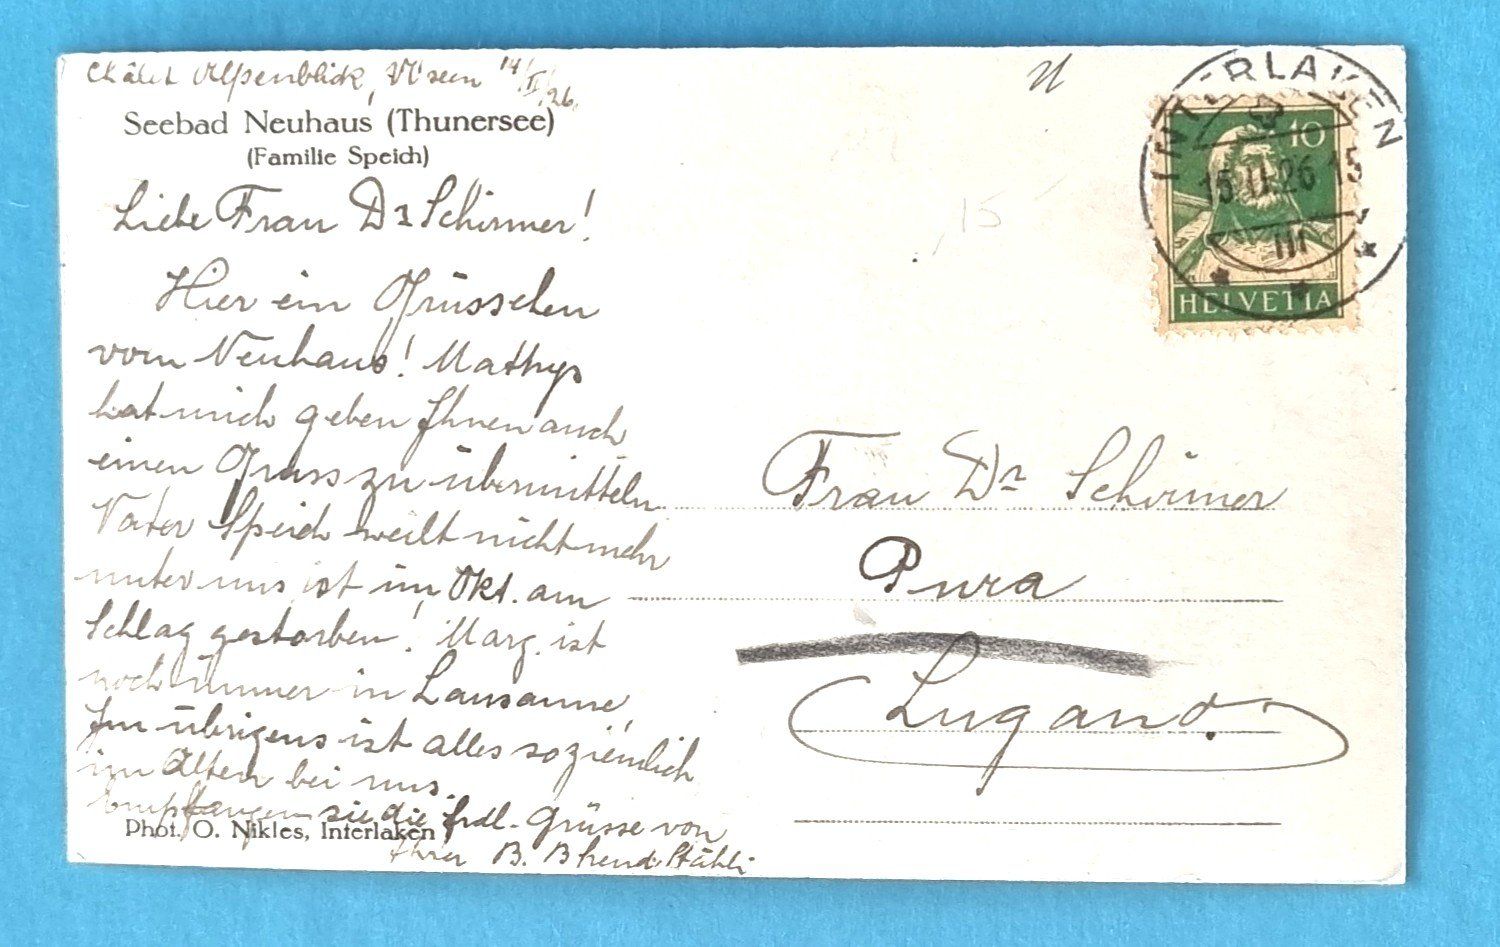 Châlet Alpenblick, 14/II/26.
Seebad Neuhaus (Thunersee)
(Familie Speich)
Liebe Frau Dr Schirmer!
Hier ein Grüsschen
vom Neuhaus! Mathys
hat mich geben Ihnen auch
einen Gruss zu übermitteln
Vater Speich weilt nicht mehr
unter uns, ist im Okt. am
Schlag gestorben! Marg. ist
noch immer in Lausanne,
Im übrigens ist alles so ziemlich
im Alten bei uns.
Empfangen sie die frdl. Grüsse von
Ihrer B.
Phot. O. Nikles, Interlaken
INTERLAKEN
15.II.26 15
III
10
HELVETIA
15
Frau Dr Schirmer
Pura
Lugano.